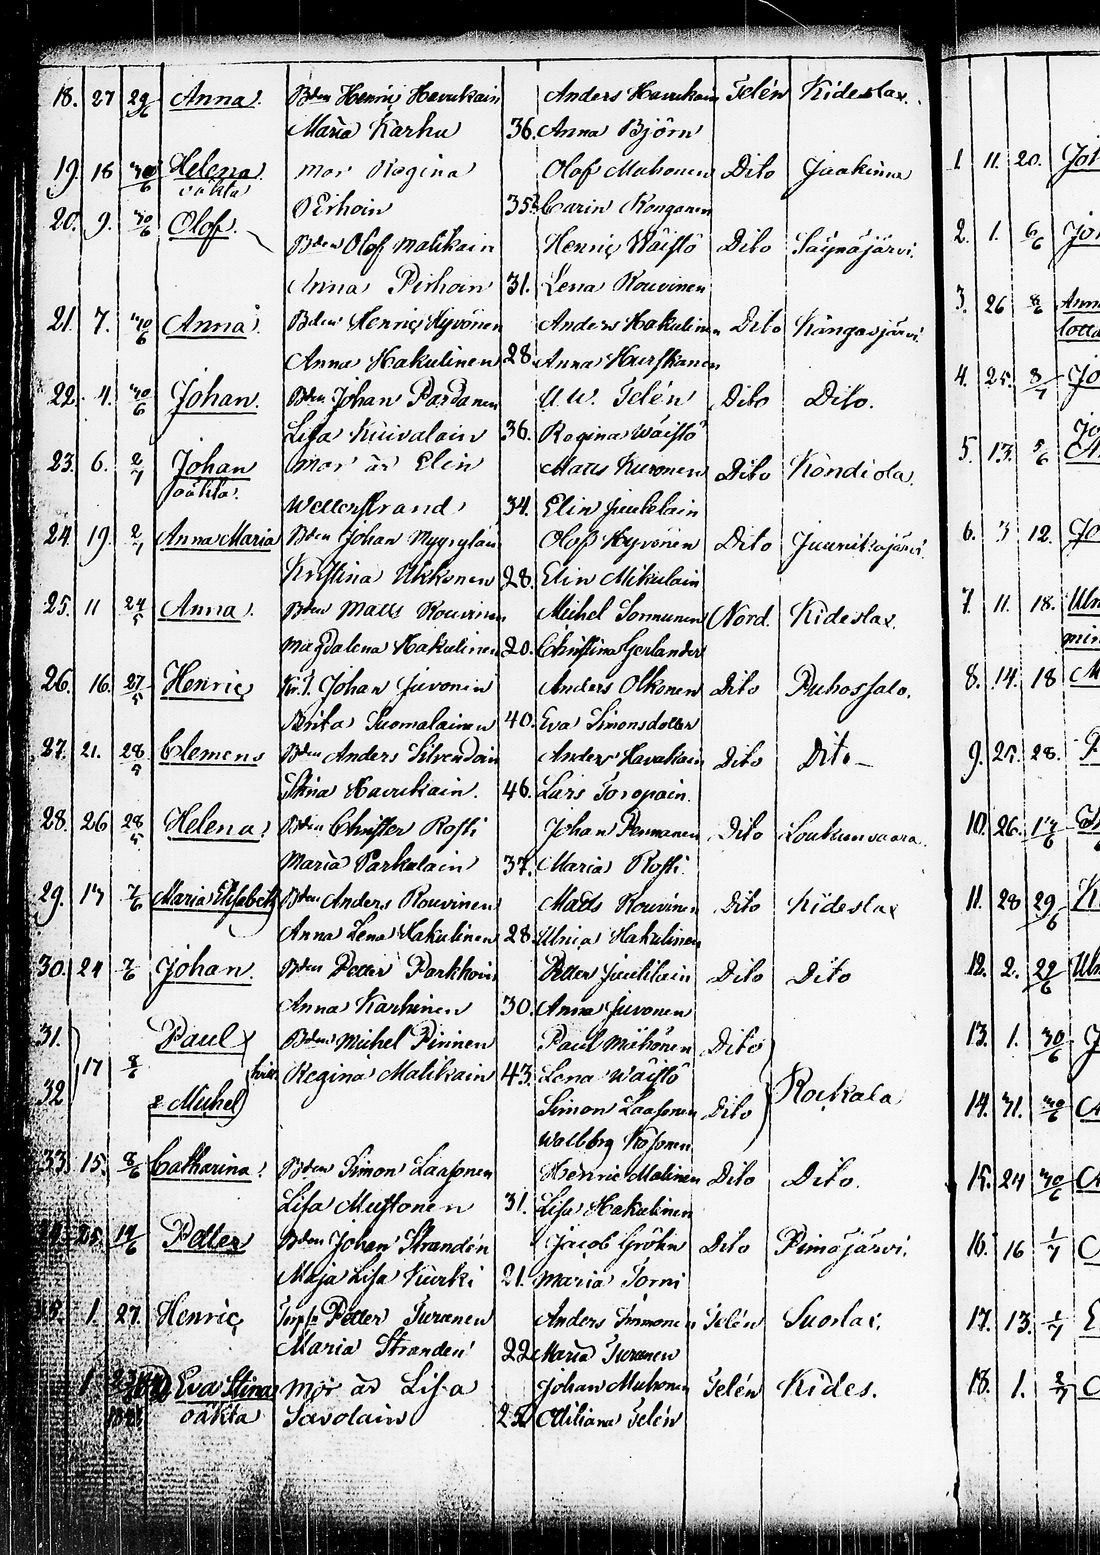 18. 27 29/6 Anna. Bden Henric Havukain Anders Havukain Telén Kideslax.
Maria Karhu 36. Anna Björn
19. 18 30/6 Helena mor Regina Olof Muhonen Dito Juakinna
oäkta Pirhoin 35. Carin Kongonen
20. 9. 30/6 Olof. Bden Olof Malikain Henric Wäistö Dito Säynäjärvi.
Anna Pirhoin 31. Lena Rouvinen
21. 7. 30/6 Anna. Bden Henric Hyvönen Anders Hakulinen Dito Kangasjärvi.
Anna Hakulinen 28. Anna Hurskanen
22. 4. 30/6 Johan. Bden Johan Pardanen U. W. Telén Dito Dito.
Lisa Kuivalain 36. Regina Wäistö
23. 6. 2/7 Johan mor är Elin Matts Kuronen Dito Kondiola.
oäkta. Wetterstrand 34. Elin Juutelain
24. 19. 2/7 Anna Maria Bden Johan Nygrylain Olof Hyvönen Dito
Kristina Ukkonen 28. Elin Mikulain
25. 11 24/5 Anna. Bden Matts Rouvinen Michel Sonnunen Nord. Kideslax.
Magdalena Hakulinen 20. Christina Gerlander
26. 16. 27/5 Henric Johan Juvonen Anders Olkonen Dito Puhossalo.
Brita Suomalainen 40. Eva Simonsdotter
27. 21. 28/5 Clemens Bden Anders Silvendoin Anders Havukain Dito Dito
Stina Havukain. 46. Lars Toropain.
28. 26 28/5 Helena. Bden Christer Rosti Johan Permanen Dito Loukunvaara.
Maria Parkulain 37. Maria Rosti.
29. 17 7/6 Maria Elisabeth Bden Anders Rouvinen Matts Rouvinen Dito Kideslax
Anna Lena Hakulinen 28. Ulrica Hakulinen
30. 24 7/6 Johan. Bden Petter Parkkoin Petter Juutilain Dito Dito
Anna Karhinen 30. Anna Juvonen
31. Paul Bden Michel Pirinen Paul Mähönen Dito
17 8/6 tvill. Regina Malikain 43. Lena Wäistö
32 & Michel Simon Laasonen Dito Rockala
Walborg Kosonen
33. 15. 8/6 Catharina. Bden Simon Laasonen Henric Malinen Dito Dito.
Lisa Mustonen 31. Lisa Hakulinen
34. 25. 14/6 Petter Bden Johan Strandén Jacob Gröhn Dito Pimäjärvi.
Maja Lisa Kurki 21. Maria Torni
35. 1. 27. Henric Petter Turanen Anders Immonen Telén Suorlax.
Maria Strandén 22. Maria Turanen
1 Eva Stina mor är Lisa Johan Muhonen Telén Kides.
oäkta Savolain 25. Miliana Telén
1. 11. 20.
2. 1. 6/6
3. 26 8/6 Anna
lotta
4. 25. 8/7
5. 13. 5/6
6. 3 12.
7. 11. 18.
8. 14. 18
9. 25. 28.
10. 26. 17/6
11. 28 29/6
12. 2. 22/6
13. 1. 30/6
14. 31. 30/6
15. 24 30/6
16. 16 1/7
17. 13. 1/7
18. 1. 2/7